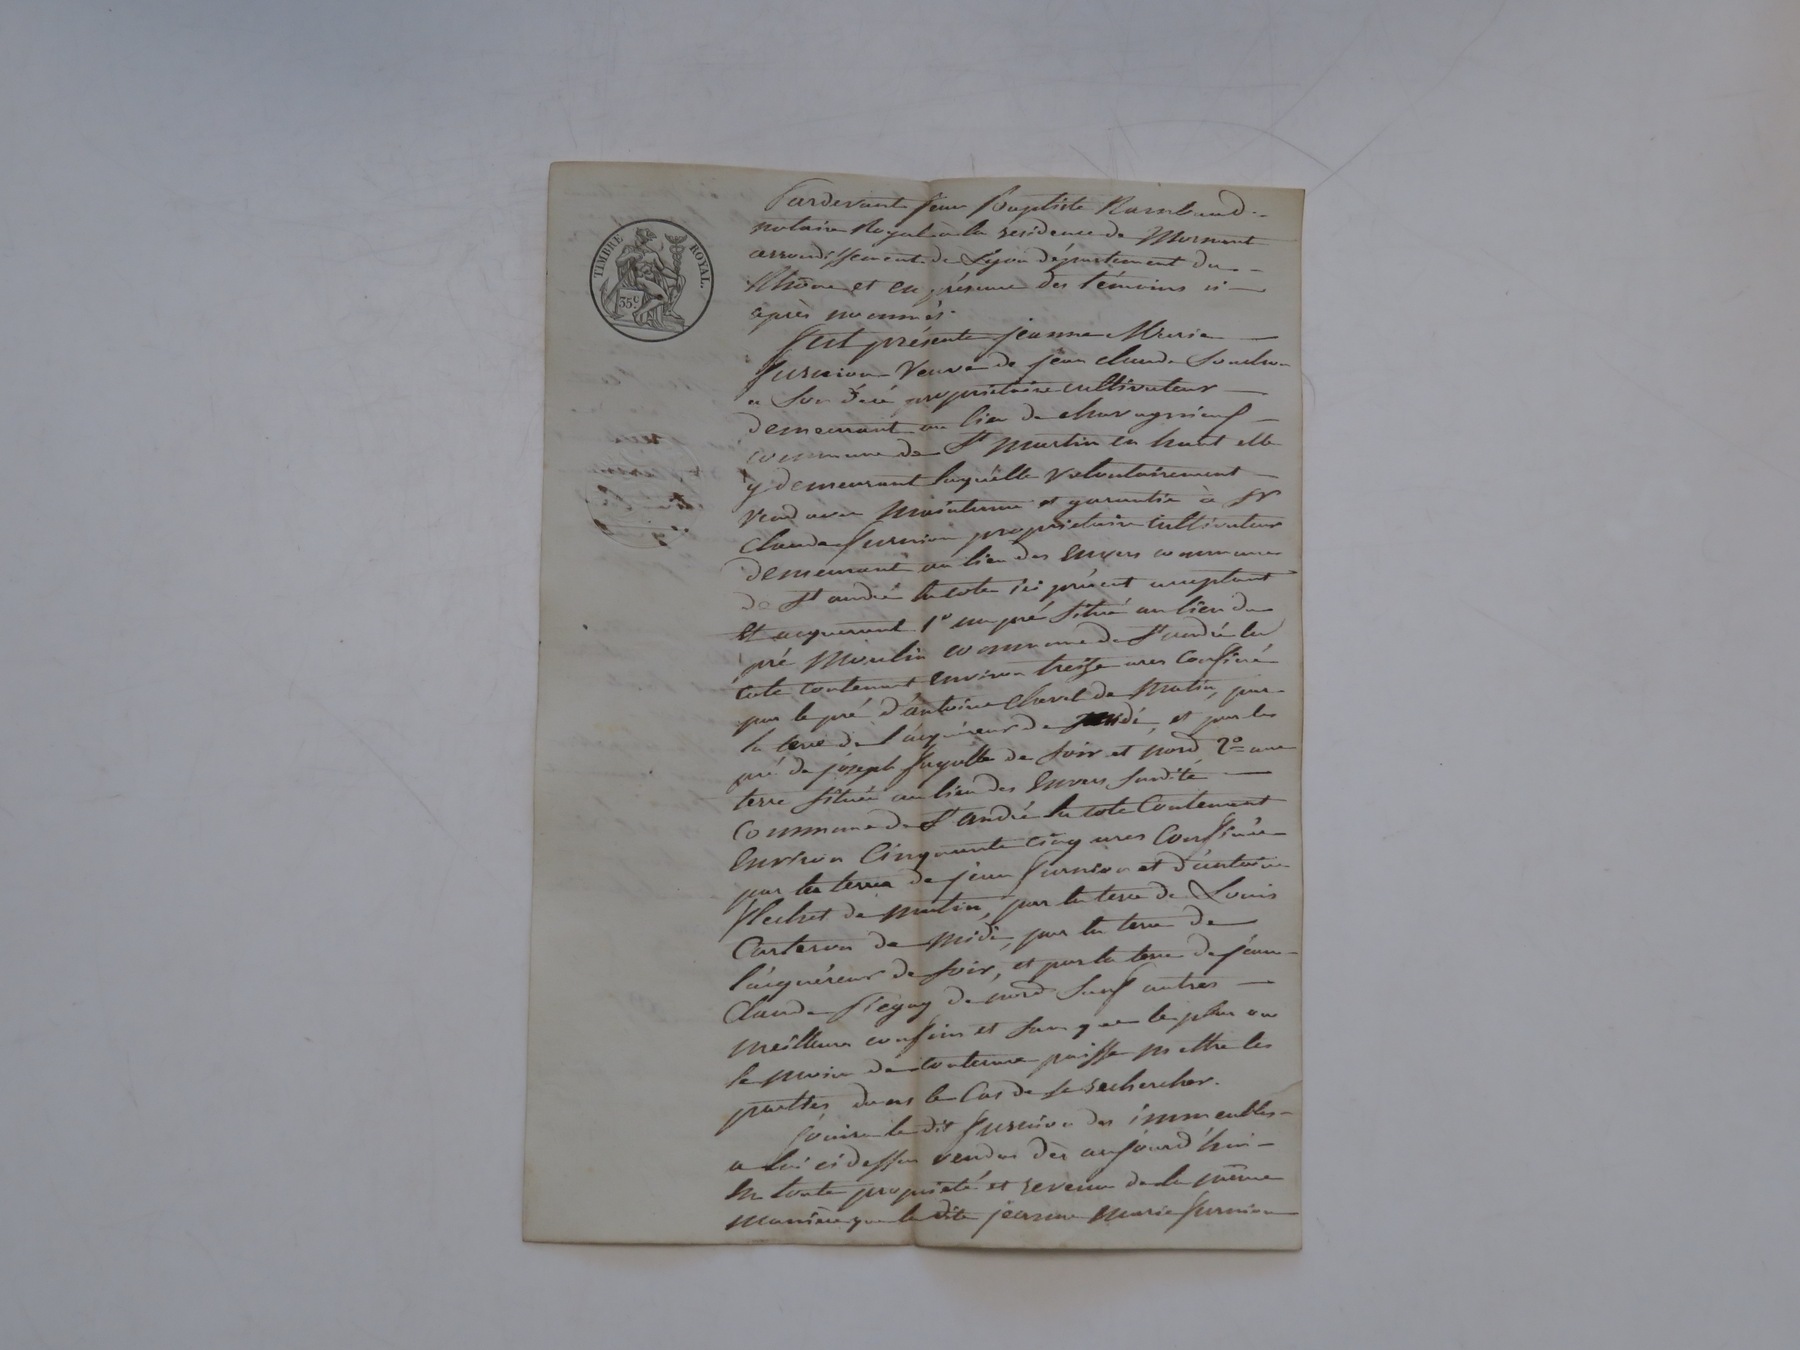 TIMBRE ROYAL.
35c
Pardevant jean baptiste Rambaud
notaire Royal a la residence de Mornant
arrondissement de Lyon département du
Rhône et en présence des témoins ci
après nommés
fut présente jeanne Marie
furnion Veuve de jean claude
propriétaire cultivateur
demeurant au lieu de
commune de St Martin en haut elle
y demeurant laquelle volontairement
vend avec maintenue et garantie à Sr
Claude furnion propriétaire cultivateur
demeurant au lieu des Envers commune
de St andré la cote ici présent acceptant
et acquerant 1o un pré situé au lieu du
pré Moulin commune de St andré la
cote contenant environ treize ares confiné
par le pré d'antoine de Matin, par
la terre de l'acquéreur de midi, et par le
pré de joseph fayolle de soir et nord 2o une
terre située au lieu des Envers susdite
Commune de St andré la cote Contenant
Environ Cinquante cinq ares Confinée
par la terre de jean furnion et d'antoine
flechet de matin, par la terre de Louis
Carteron de midi, par la terre de
l'acquéreur de soir, et par la terre de jean
Claude de nord sauf autres
meilleurs confins et sans que le plus ou
le moins de contenue puisse mettre les
parties dans le Cas de se rechercher.
jouira le dit furnion des immeubles
a lui ci dessus vendus dès aujourd'hui
En toute propriété et revenu de la même
manière que la dite jeanne Marie furnion